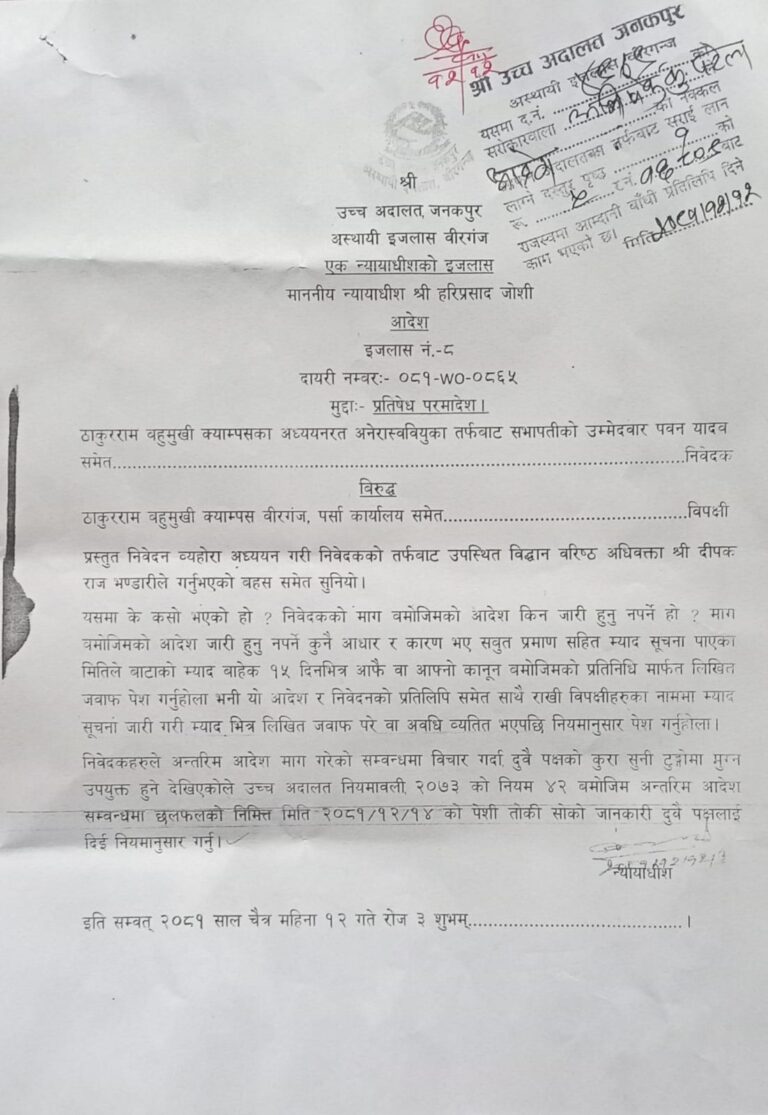 श्री उच्च अदालत जनकपुर
अस्थायी इजलास वीरगन्ज
यसमा द.नं. को
सरोकारवाला
को नक्कल
अदालतबाट तर्फबाट सराई लान
लाग्ने दस्तुर पृष्ठ १ को
रु. र.नं. बाट
राजस्वमा आम्दानी बाँधी प्रतिलिपि दिने
काम भएको छ। मिति २०८१।१२।१२
श्री
उच्च अदालत, जनकपुर
अस्थायी इजलास वीरगंज
एक न्यायाधीशको इजलास
माननीय न्यायाधीश श्री हरिप्रसाद जोशी
आदेश
इजलास नं.-८
दायरी नम्वरः- ०८१-WO-०८६५
मुद्दाः- प्रतिषेध परमादेश।
ठाकुरराम वहुमुखी क्याम्पसका अध्ययनरत अनेरास्ववियुका तर्फवाट सभापतीको उम्मेदवार पवन यादव
समेत..........................................................................................निवेदक
विरुद्ध
ठाकुरराम वहुमुखी क्याम्पस वीरगंज, पर्सा कार्यालय समेत.......................................विपक्षी
प्रस्तुत निवेदन व्यहोरा अध्ययन गरी निवेदकको तर्फवाट उपस्थित विद्वान वरिष्ठ अधिवक्ता श्री दीपक
राज भण्डारीले गर्नुभएको वहस समेत सुनियो।
यसमा के कसो भएको हो ? निवेदकको माग वमोजिमको आदेश किन जारी हुनु नपर्ने हो ? माग
वमोजिमको आदेश जारी हुनु नपर्ने कुनै आधार र कारण भए सवुत प्रमाण सहित म्याद सूचना पाएका
मितिले बाटाको म्याद बाहेक १५ दिनभित्र आफै वा आफ्नो कानून वमोजिमको प्रतिनिधि मार्फत लिखित
जवाफ पेश गर्नुहोला भनी यो आदेश र निवेदनको प्रतिलिपि समेत साथै राखी विपक्षीहरुका नाममा म्याद
सूचना जारी गरी म्याद भित्र लिखित जवाफ परे वा अवधि व्यतित भएपछि नियमानुसार पेश गर्नुहोला।
निवेदकहरुले अन्तरिम आदेश माग गरेको सम्वन्धमा विचार गर्दा दुवै पक्षको कुरा सुनी टुङ्गोमा पुग्न
उपयुक्त हुने देखिएकोले उच्च अदालत नियमावली, २०७३ को नियम ४२ बमोजिम अन्तरिम आदेश
सम्वन्धमा छलफलको निमित्त मिति २०८१/१२/१४ को पेशी तोकी सोको जानकारी दुवै पक्षलाई
दिई नियमानुसार गर्नु।
न्यायाधीश
इति सम्वत् २०८१ साल चैत्र महिना १२ गते रोज ३ शुभम्........................................।